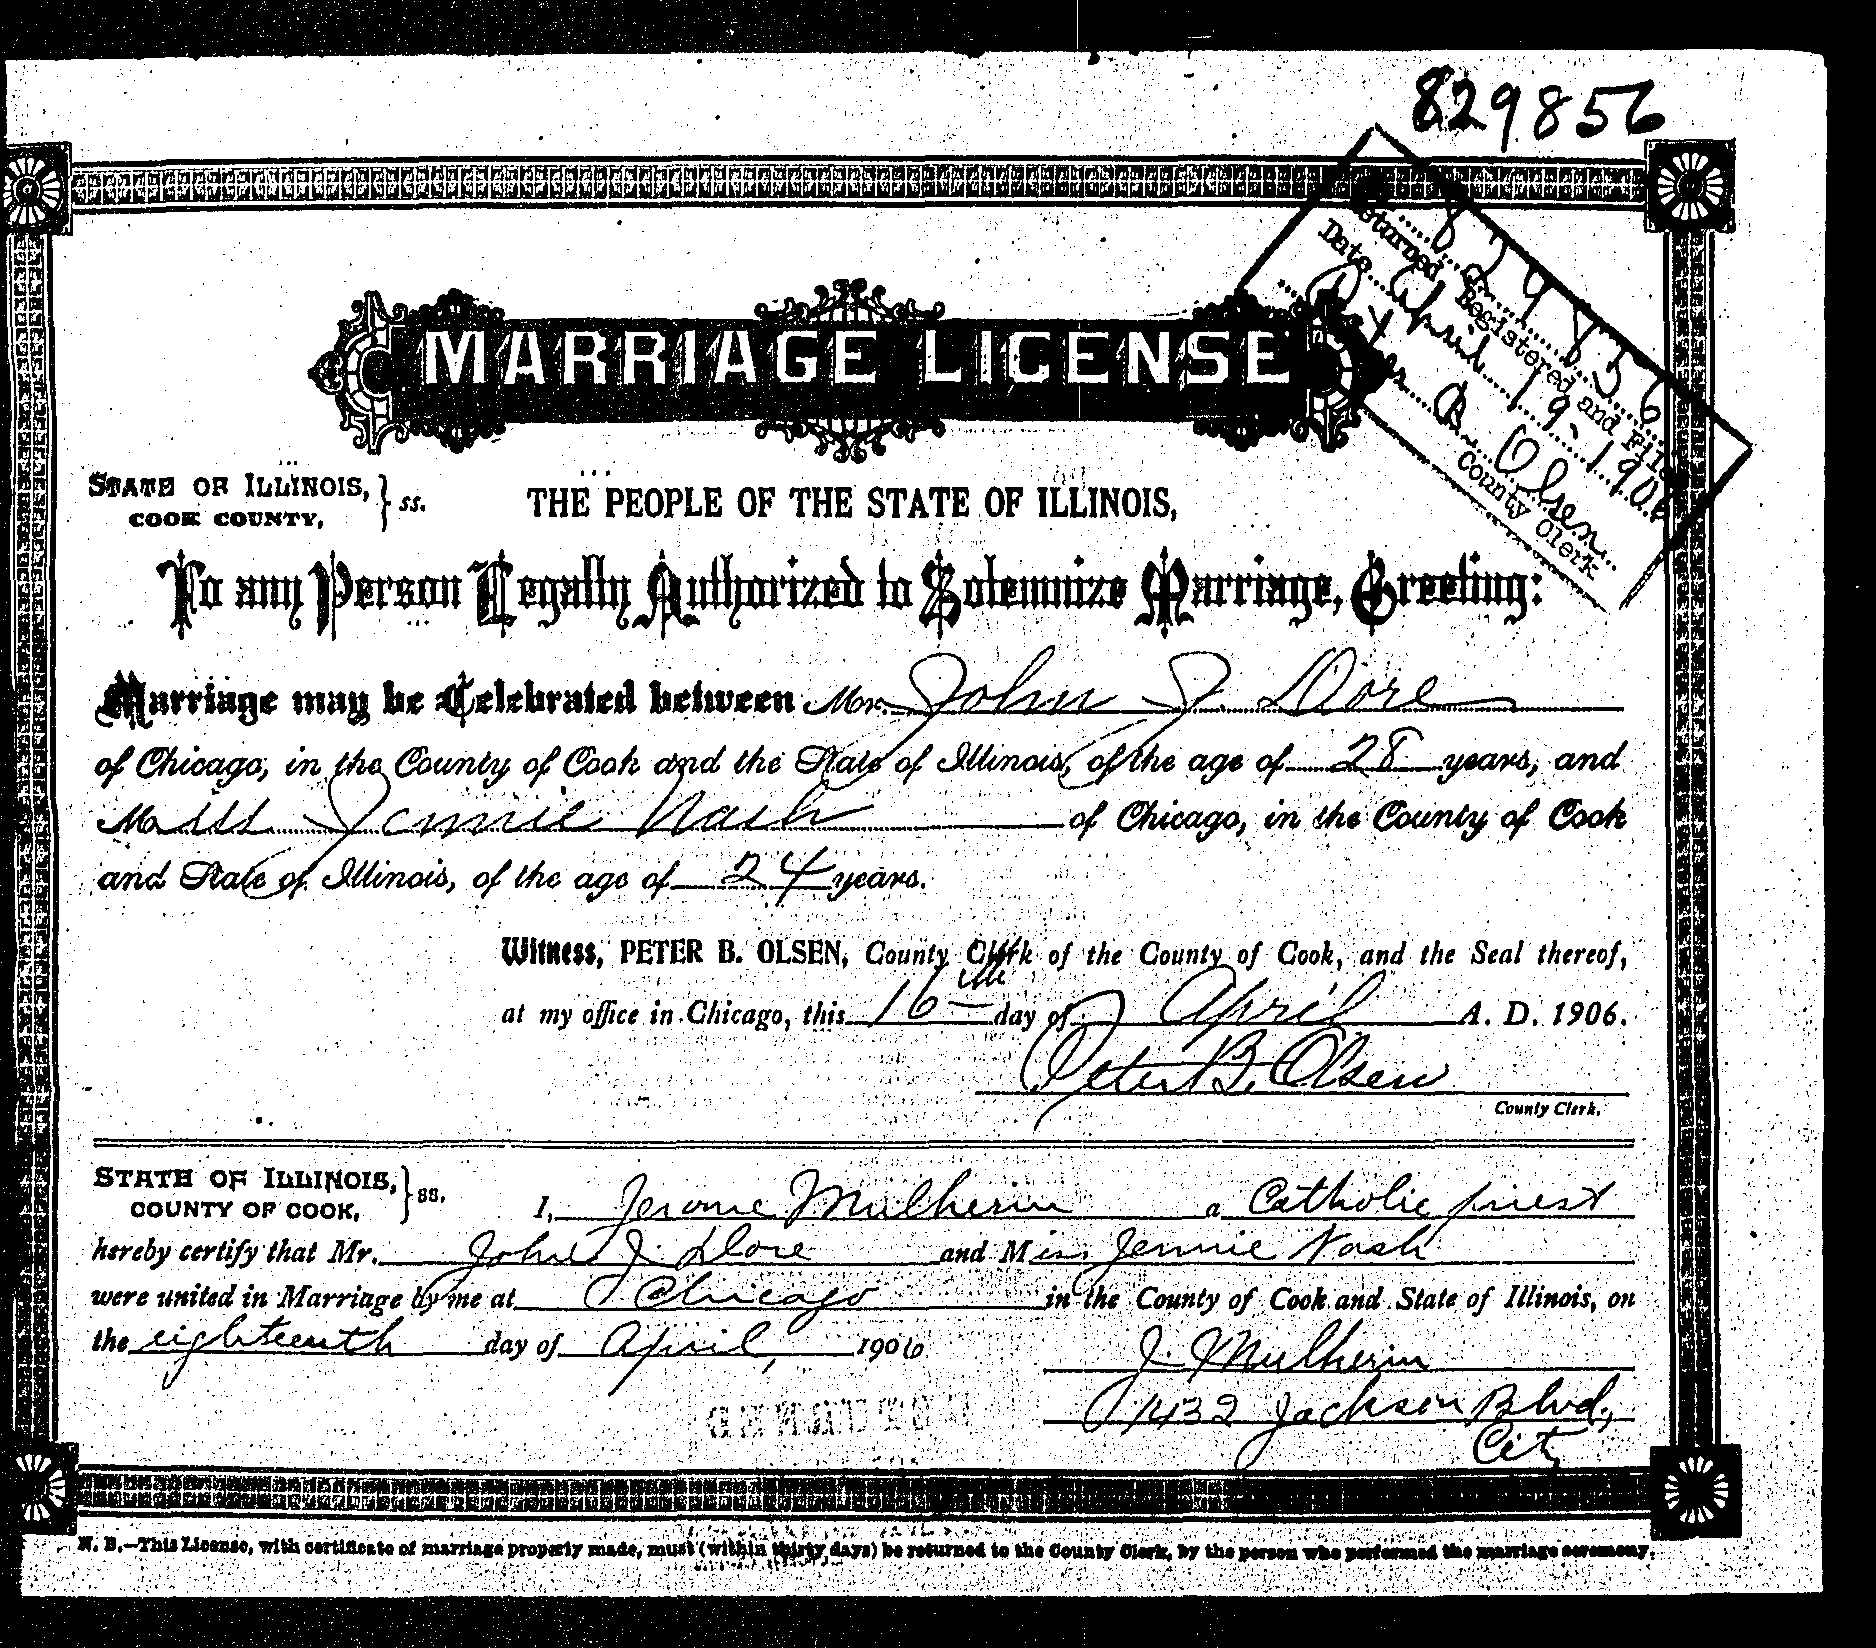 829856
829856
Returned, Registered and Filed
Date April 19-1906
Peter B. Olsen
County Clerk
MARRIAGE LICENSE
STATE OF ILLINOIS, } ss.
COOK COUNTY,
THE PEOPLE OF THE STATE OF ILLINOIS,
To any Person Legally Authorized to Solemnize Marriage, Greeting:
Marriage may be Celebrated between Mr. John J. Dore
of Chicago, in the County of Cook and the State of Illinois, of the age of 28 years, and
Miss Jennie Nash of Chicago, in the County of Cook
and State of Illinois, of the age of 24 years.
Witness, PETER B. OLSEN, County Clerk of the County of Cook, and the Seal thereof,
at my office in Chicago, this 16th day of April A. D. 1906.
Peter B. Olsen
County Clerk.
STATE OF ILLINOIS, } ss.
COUNTY OF COOK,
I, Jerome Mulherin a Catholic priest
hereby certify that Mr. John J. Dore and Miss Jennie Nash
were united in Marriage by me at Chicago in the County of Cook and State of Illinois, on
the eighteenth day of April, 1906
J. Mulherin
1432 Jackson Blvd.,
City
N. B.—This License, with certificate of marriage properly made, must (within thirty days) be returned to the County Clerk, by the person who performed the marriage ceremony.